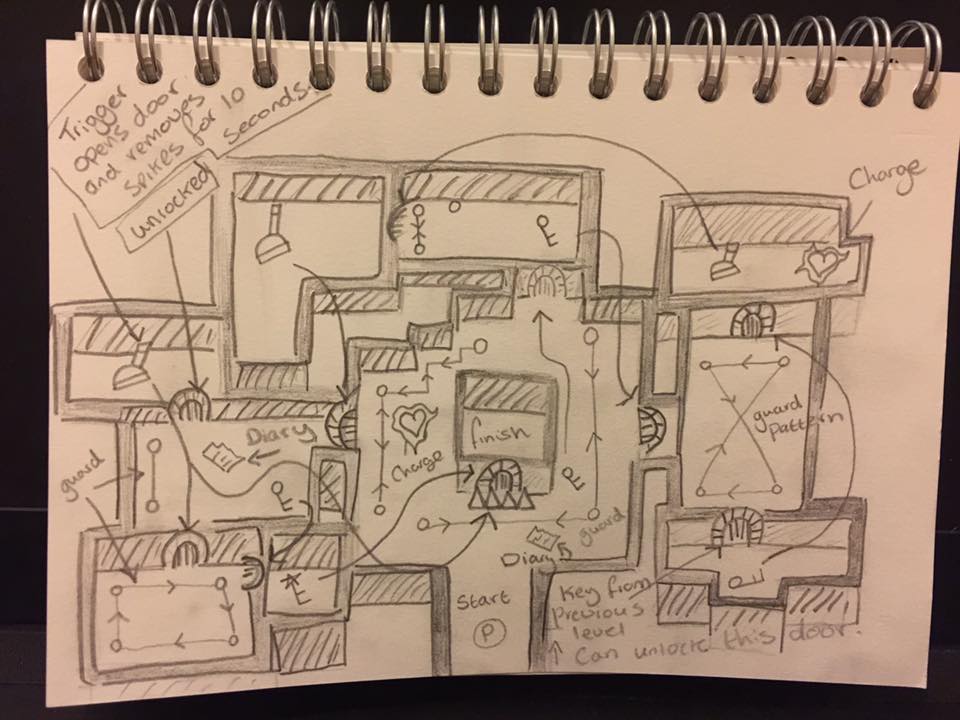 Trigger
opens door
and removes
spikes for 10
seconds.
unlocked
Charge
Diary
guard
Charge
finish
guard
pattern
guard
Diary
Start
P
Key from
Previous
level
Can unlock this door.